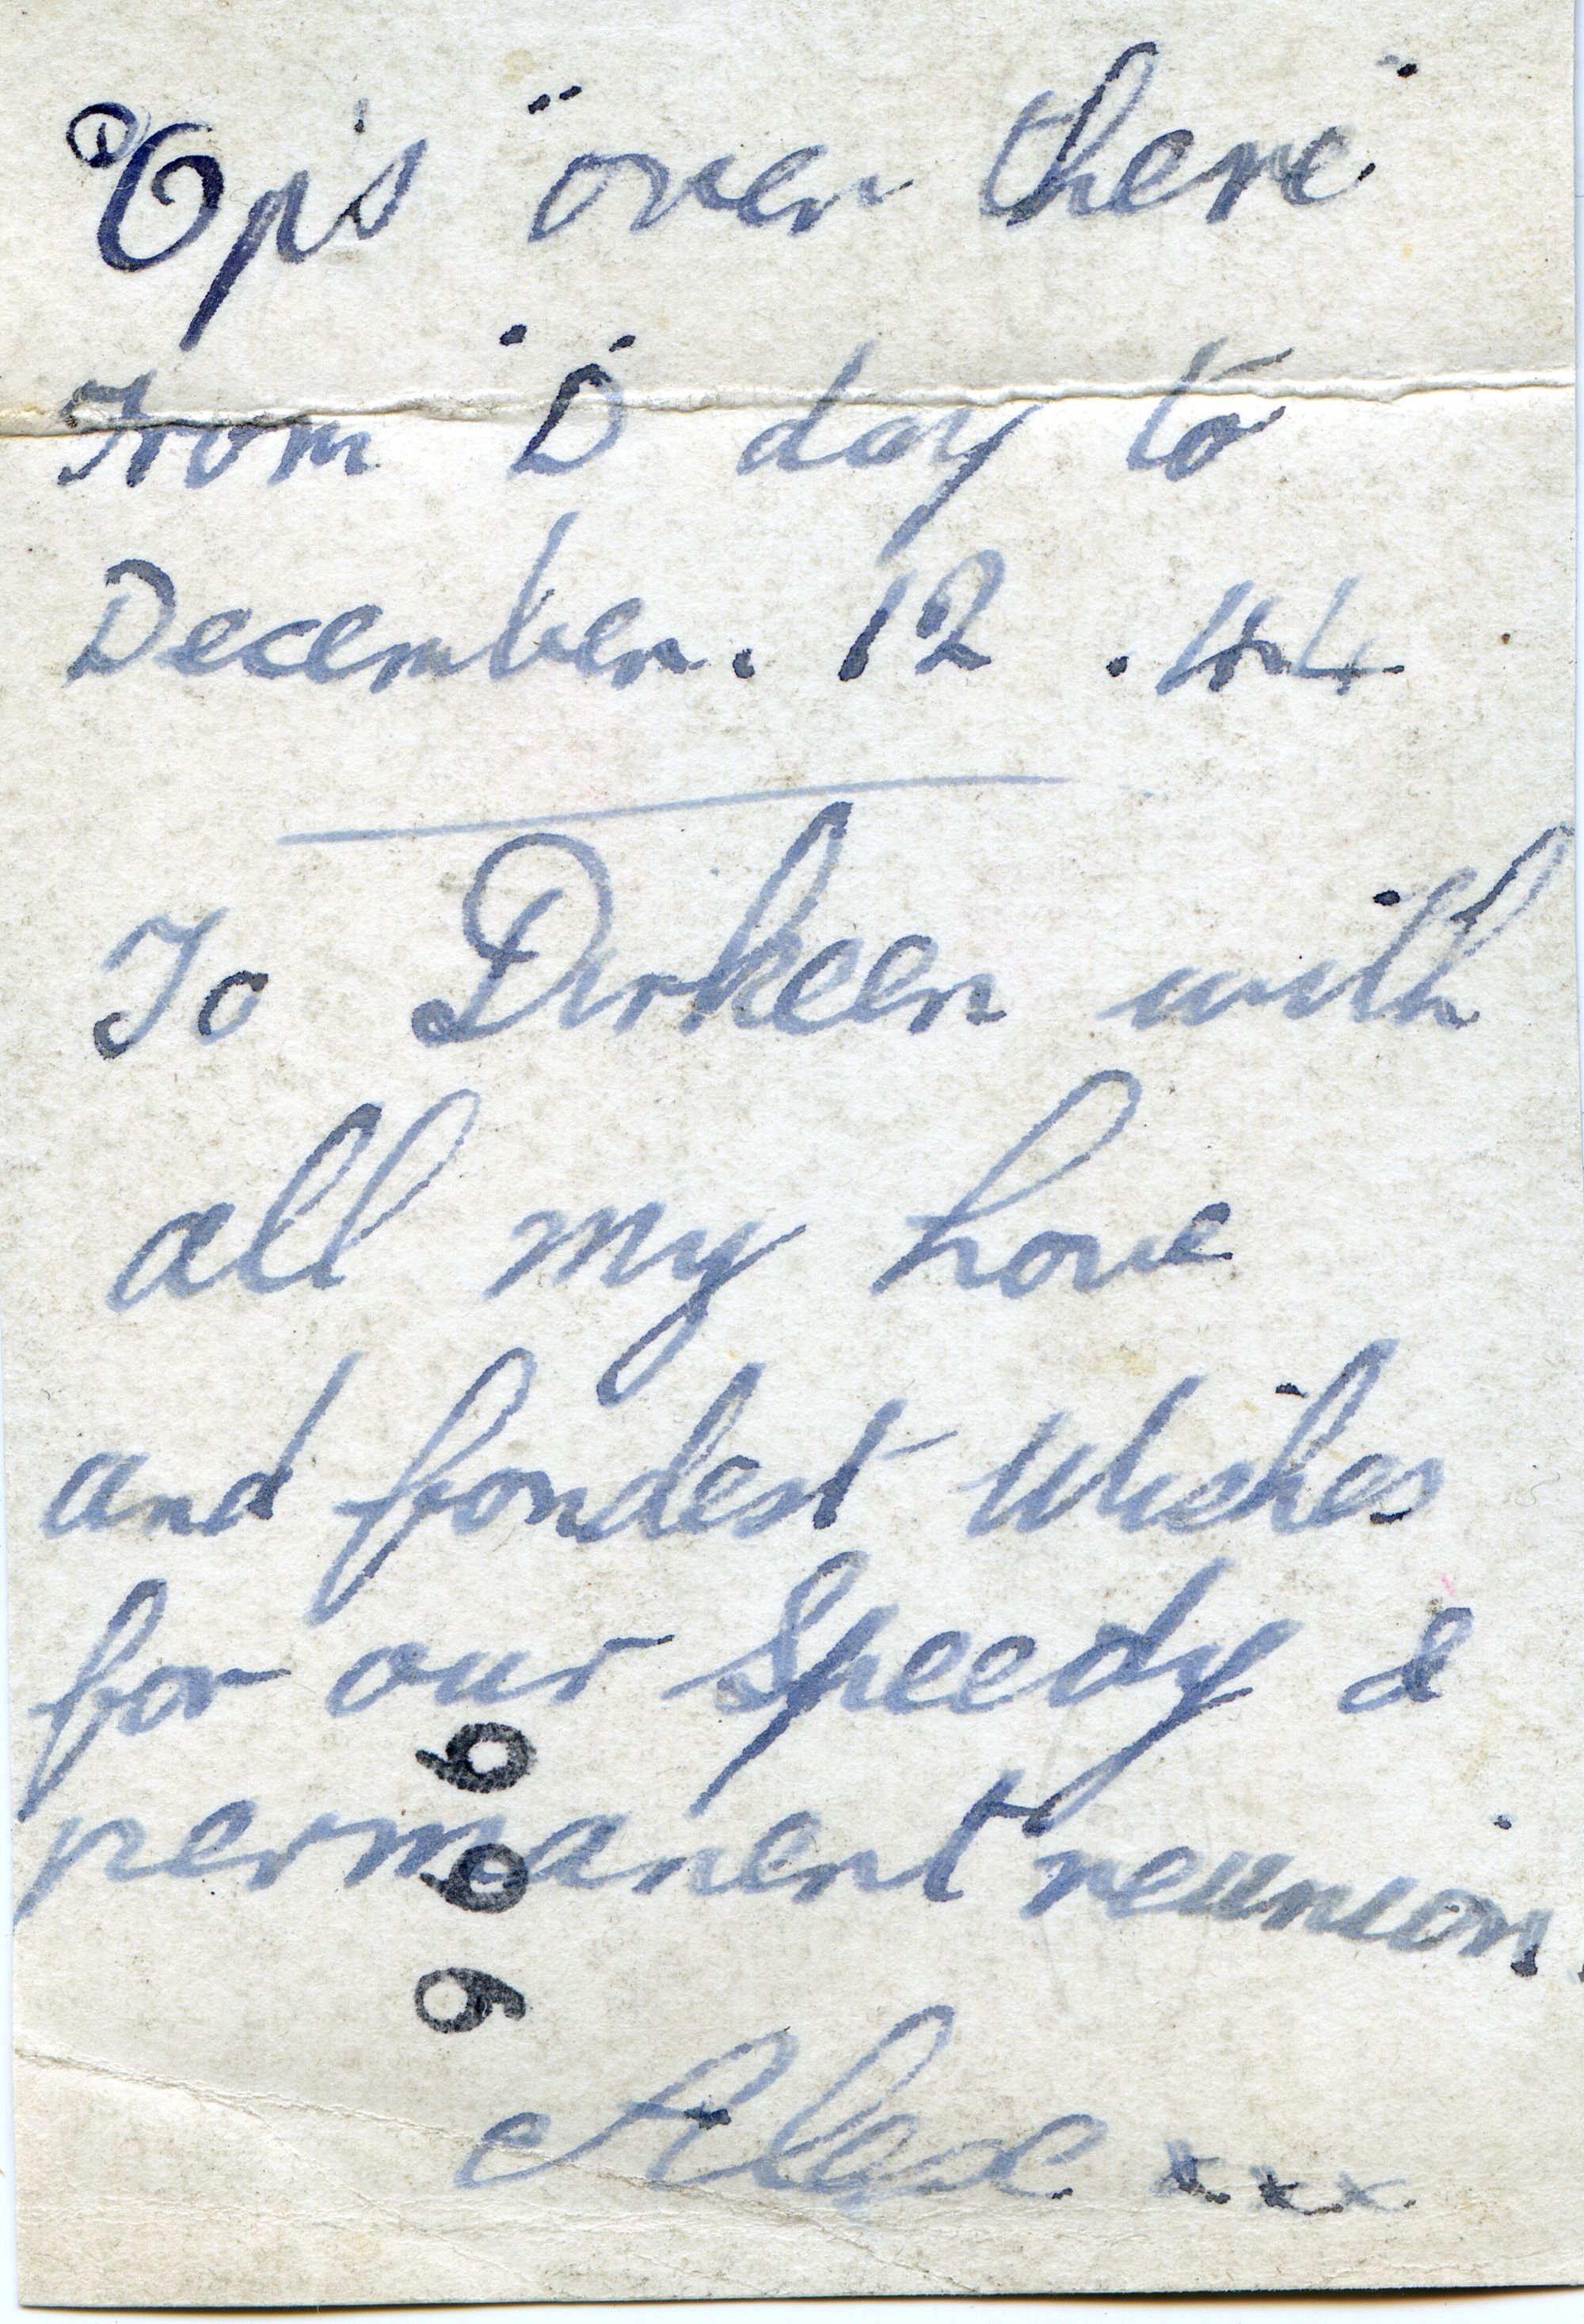 Op's "over there"
From "D" day to
December. 12 .44
To Dirkeen with
all my Love
and fondest Wishes
for our Speedy &
permanent reunion.
966
Alex xxx